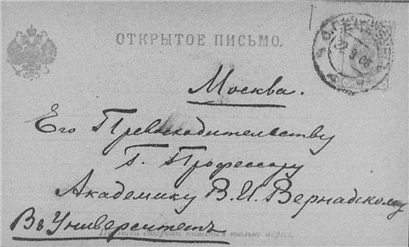 ОТКРЫТОЕ ПИСЬМО.
Москва.
Его Превосходительству
Г. Профессору
Академику В. И. Вернадскому
Въ Университетъ